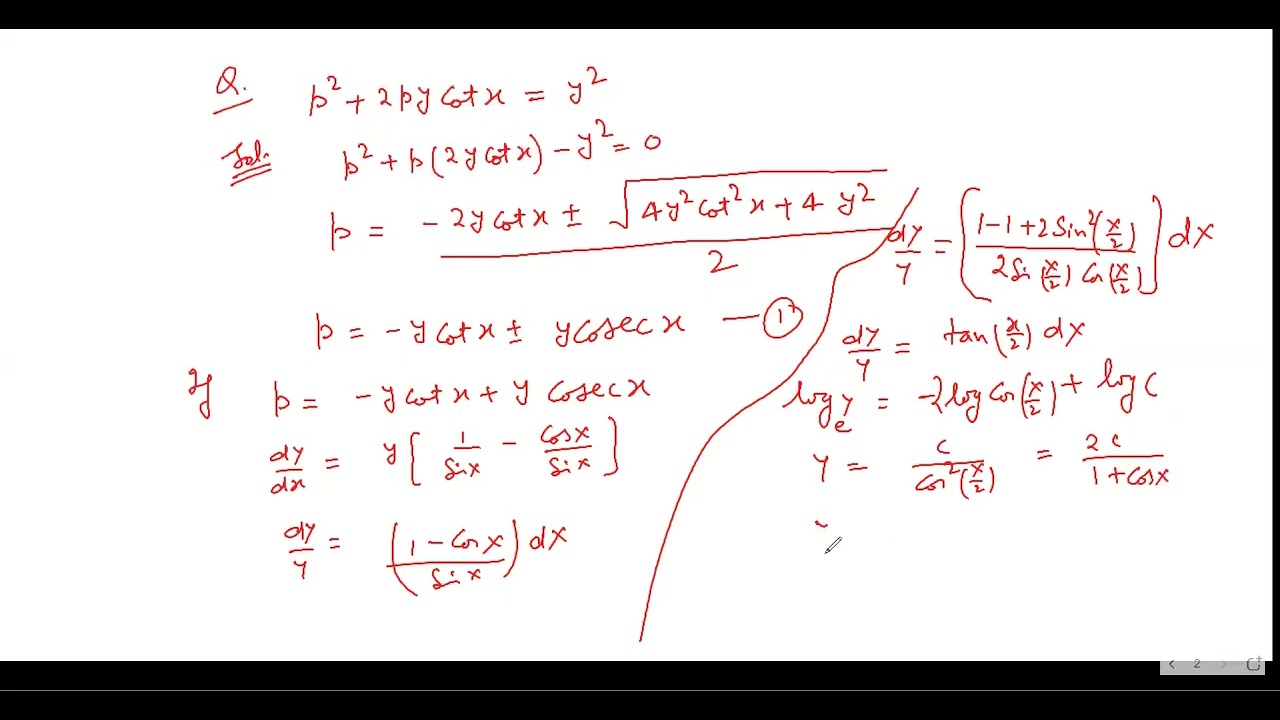 Q. p² + 2py cot x = y²
Sol. p² + p(2y cot x) - y² = 0
p = (-2y cot x ± √(4y² cot² x + 4 y²)) / 2
p = -y cot x ± y cosec x — ①
If p = -y cot x + y cosec x
dy/dx = y[1/Sin x - Cos x/Sin x]
dy/y = ((1 - Cos x)/Sin x) dx
dy/y = [(1-1+2Sin²(x/2))/(2Sin(x/2) Cos(x/2))] dx
dy/y = tan(x/2) dx
log_e y = -2log Cos(x/2) + log C
y = c/Cos²(x/2) = 2c/(1+Cos x)
2